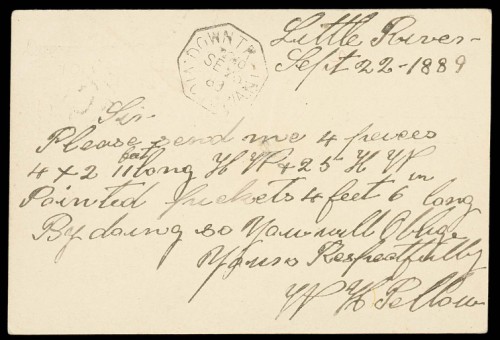 Little River-
Sept 22-1889
DOWN TRAIN
SE 23
89
Sir
Please send me 4 pieces
4 x 2 11 feet long H W & 25 H W
Pointed pickets 4 feet 6 in long
By doing so You will Oblige
Yours Respectfully
W H Pellow